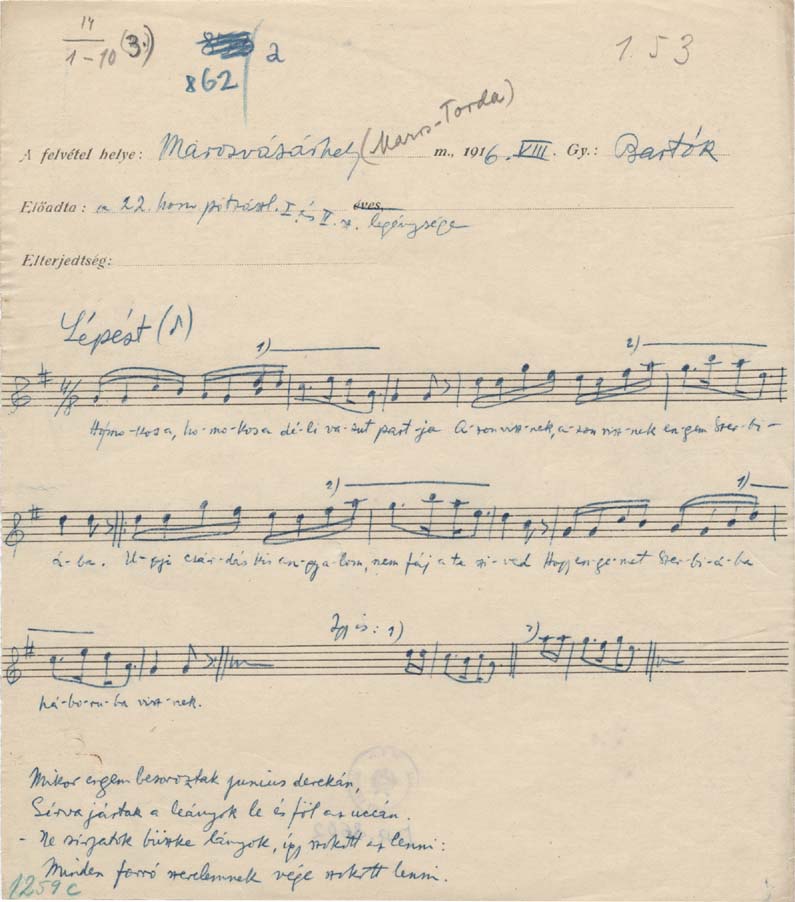 14
1-10 (3.)
862 a
1.53
A felvétel helye: Marosvásárhely (Maros-Torda) m., 1916. VIII. Gy.: Bartók
Előadta: a 22. honv. I. és II. sz. éves, legénysége
Elterjedtség:
Lépést (♪)
1) 2)
4/8
Homokos a, ho-mo-kos a dé-li va-sut part-ja A-zon visz-nek, a-zon visz-nek en-gem Szer-bi-
2) 1)
á-ba. U-gyi csár-dás kis an-gya-lom, nem fáj a te szi-ved Hogy en-ge-met Szer-bi-á-ba
Igy is: 1) 2)
há-bo-ru-ba visz-nek.
Mikor engem besoroztak junius derekán,
Sírva jártak a leányok le és föl az uccán.
- Ne sirjatok büszke lányok, így szokott az lenni:
Minden forró szerelemnek vége szokott lenni.
1259c